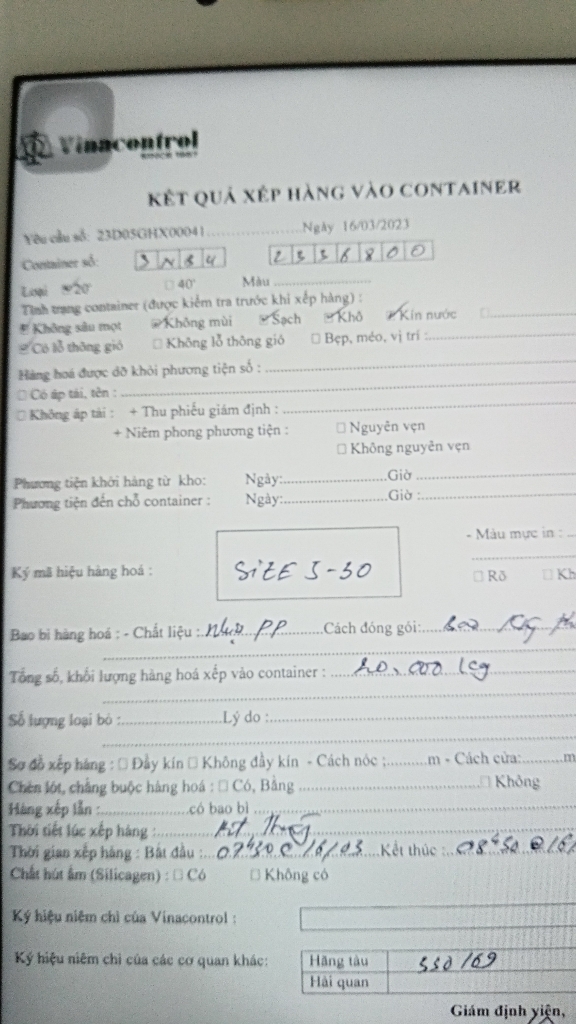 Vinacontrol
SINCE 1957
KẾT QUẢ XẾP HÀNG VÀO CONTAINER
Yêu cầu số: 23D05GHX00041 Ngày 16/03/2023
Container số: 2336800
Loại 20' 40' Màu
Tình trạng container (được kiểm tra trước khi xếp hàng) :
Không sâu mọt Không mùi Sạch Khô Kín nước
Có lỗ thông gió Không lỗ thông gió Bẹp, méo, vị trí :
Hàng hoá được dỡ khỏi phương tiện số :
Có áp tải, tên :
Không áp tải : + Thu phiếu giám định :
+ Niêm phong phương tiện : Nguyên vẹn
Không nguyên vẹn
Phương tiện khởi hàng từ kho: Ngày: Giờ
Phương tiện đến chỗ container : Ngày: Giờ :
- Màu mực in :
Ký mã hiệu hàng hoá : SIZE 5-50
Rõ Kh
Bao bì hàng hoá : - Chất liệu : Nhựa PP Cách đóng gói:
Tổng số, khối lượng hàng hoá xếp vào container : 20.000 kg
Số lượng loại bỏ : Lý do :
Sơ đồ xếp hàng : Đầy kín Không đầy kín - Cách nóc : m - Cách cửa: m
Chèn lót, chằng buộc hàng hoá : Có, Bằng Không
Hàng xếp lẫn : có bao bì
Thời tiết lúc xếp hàng :
Thời gian xếp hàng : Bắt đầu : 07h30 @ 16/03 Kết thúc : 08h50 @ 16/
Chất hút ẩm (Silicagen) : Có Không có
Ký hiệu niêm chì của Vinacontrol :
Ký hiệu niêm chì của các cơ quan khác: Hãng tàu 550169
Hải quan
Giám định viên,